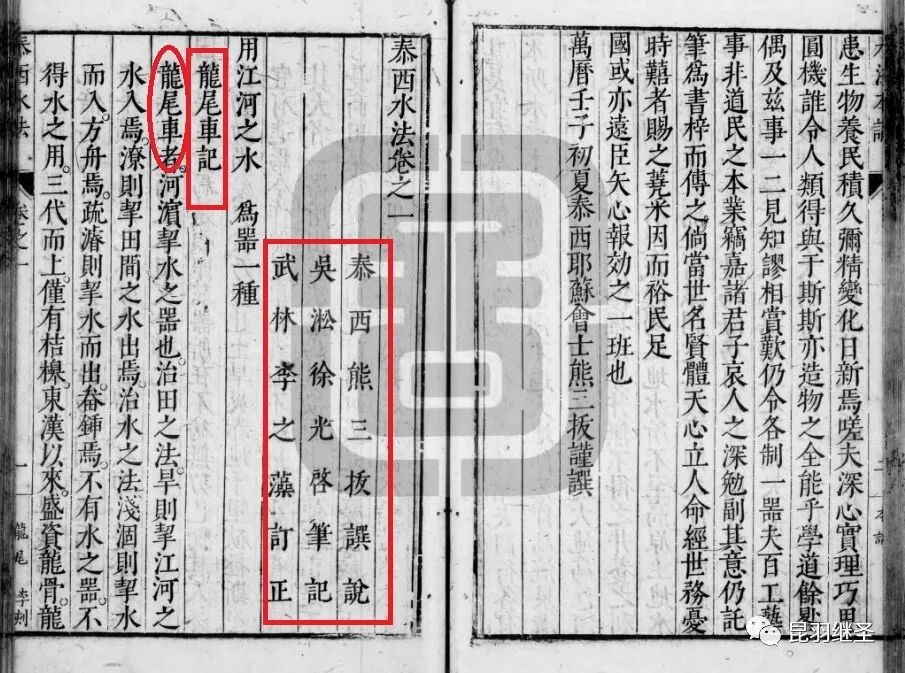 患生物養民積久彌精變化日新焉嗟夫深心實理巧思
圓機誰令人類得與于斯斯亦造物之全能乎學道餘晷
偶及玆事一二見知謬相賞歎仍令各制一器夫百工藝
事非道民之本業竊嘉諸君子哀人之深勉副其意仍託
筆爲書梓而傳之倘當世名賢體天心立人命經世務憂
時囏者賜之蕘采因而裕民足
國或亦遠臣矢心報効之一班也
萬曆壬子初夏泰西耶穌會士熊三拔謹譔
泰西水法卷之一
泰西熊三拔譔說
吳淞徐光啓筆記
武林李之藻訂正
用江河之水 爲器一種
龍尾車記
龍尾車者。河濵挈水之器也。治田之法。旱則挈江河之
水入焉。潦則挈田間之水出焉。治水之法。淺涸則挈水
而入。方舟焉。疏濬則挈水而出。畚鍤焉。不有水之器。不
得水之用。三代而上。僅有桔橰。東漢以來。盛資龍骨。龍
泰西水法
卷之一
一
龍尾
李刋
昆羽继圣